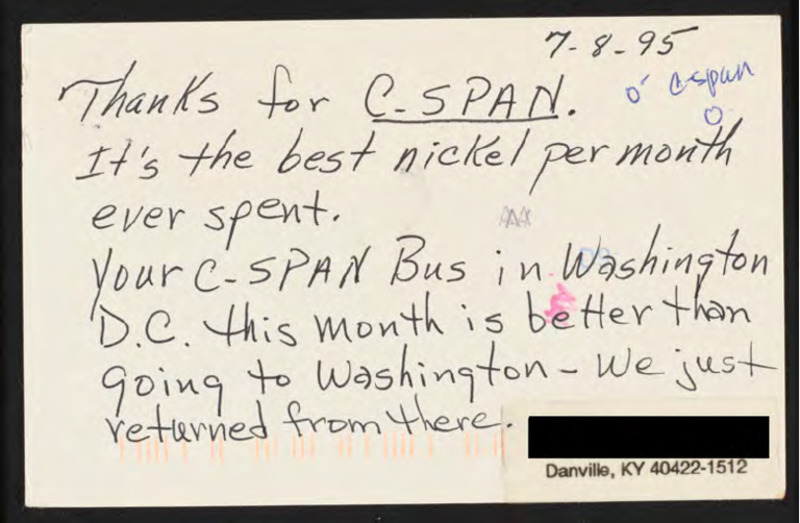 7-8-95
Thanks for C-SPAN.
c-span
It's the best nickel per month
ever spent.
Your C-SPAN Bus in Washington
D.C. this month is better than
going to Washington - We just
returned from there.
Danville, KY 40422-1512